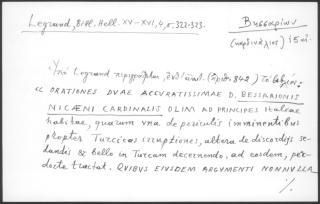 Legrand, Bibl. Hell. XV-XVI, 4, σ. 322-323.
Βησσαρίων
(καρδινάλιος) 15 αἰ.
Ὑπὸ Legrand περιγράφεται, (ἀριθ. 842) τὸ
« ORATIONES DVAE ACCURATISSIMAE D. BESSARIONIS
NICAENI CARDINALIS OLIM AD PRINCIPES Italiae
habitae, quarum vna de periculis imminentibus
propter Turcicas irruptiones, altera de discordijs se-
dandis & bello in Turcam decernendo, ad eosdem, per-
docte tractat. QUIBUS EIUSDEM ARGUMENTI NONNULLA
/.